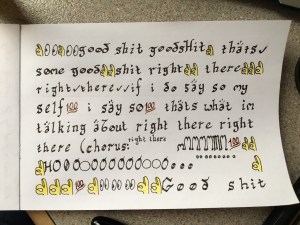 👌👀👌👀👌👀👌👀👌👀 good shit go౦ԁ sHit👌 thats✔
some good👌👌shit right👌👌there👌👌👌
right✔there✔✔if i do ƽaү so my
self💯 i say so💯 thats what im
talking about right there right
there (chorus: ʳᶦᵍʰᵗ ᵗʰᵉʳᵉ) mMMMMᎷМ💯👌👌
👌НO0ОଠOOOOOОଠଠOoooᵒᵒᵒᵒᵒᵒᵒᵒᵒ👌
👌👌👌💯👌👀👀👀👌👌Good shit